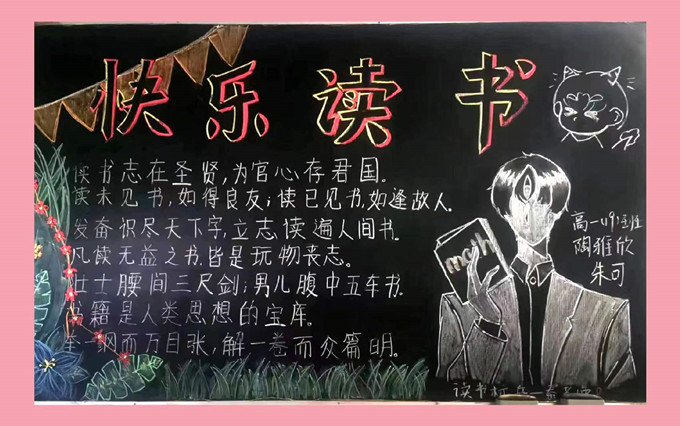 快乐读书
读书志在圣贤,为官心存君国。
读未见书,如得良友;读已见书,如逢故人。
发奋识尽天下字,立志读遍人间书。
凡读无益之书,皆是玩物丧志。
壮士腰间三尺剑;男儿腹中五车书。
书籍是人类思想的宝库。
举一纲而万目张,解一卷而众篇明。
math
高一
陶雅欣
朱可
读书